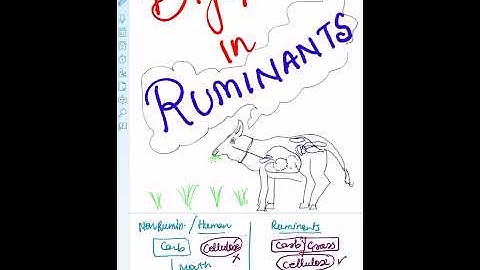 in
RUMINANTS
Non Rumin. / Human
Ruminants
Carb
Cellulose
Carb/Grass
Cellulose
Mouth